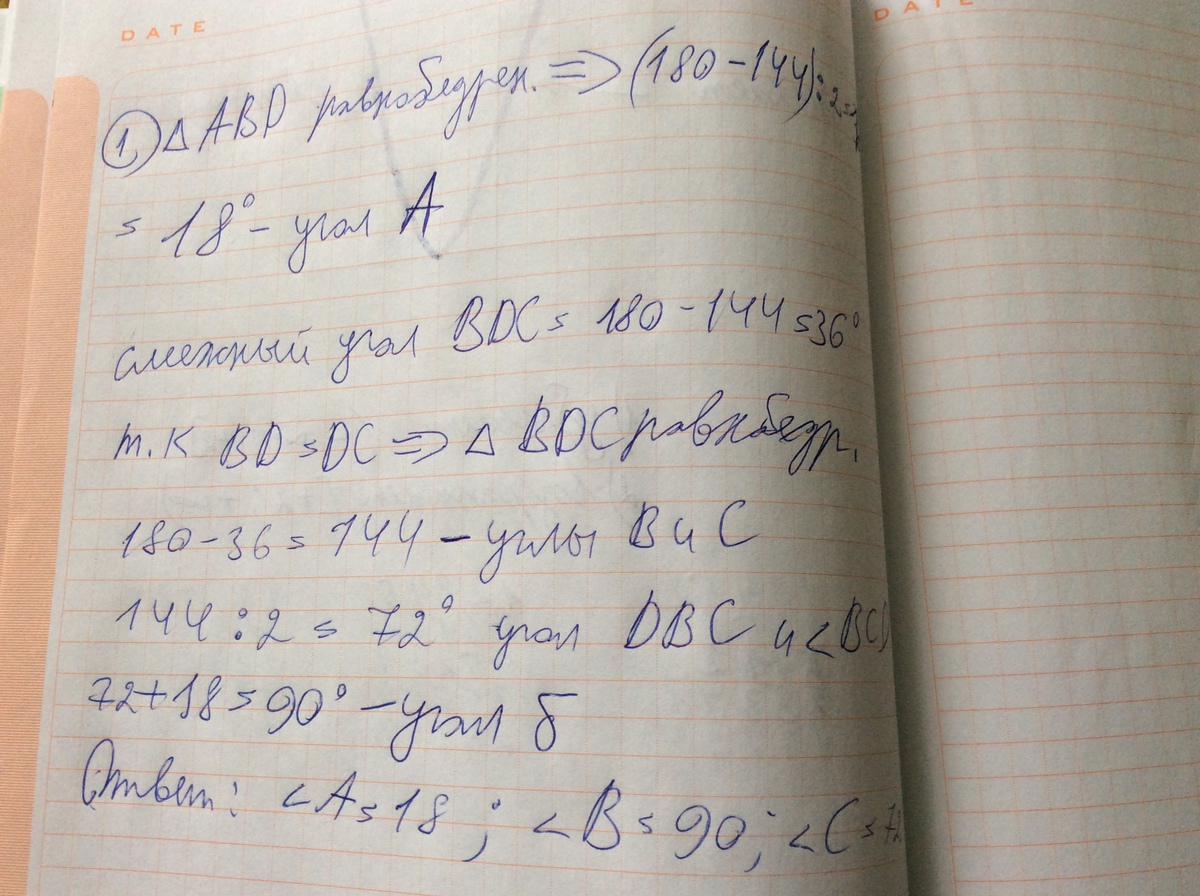 DATE
DATE
1. △ ABD равнобедрен. => (180-144):2=
= 18° - угол A
смежный угол BDC = 180-144=36°
т.к BD=DC => △ BDC равнобедр.
180-36=144 - углы B и C
144:2 = 72° угол DBC и <BCD
72+18=90° - угол б
Ответ: <A=18; <B=90; <C=72